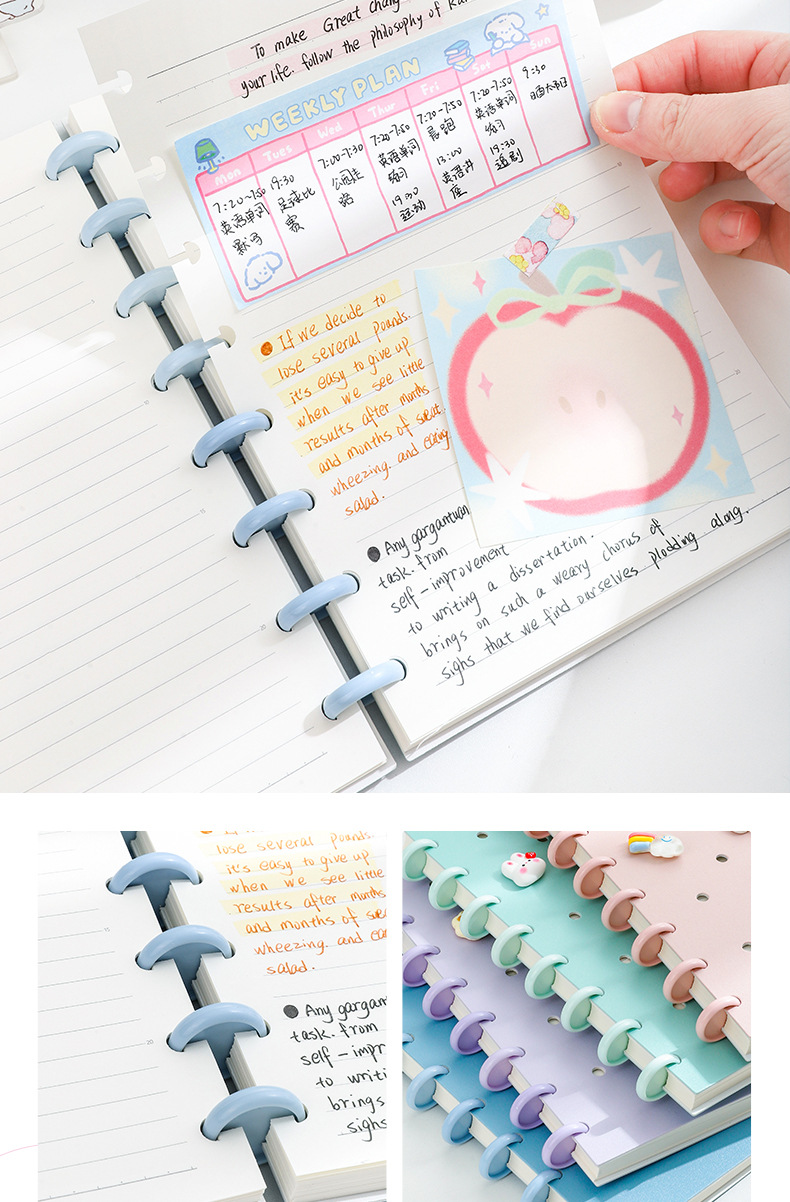 To make Great chang
your life. follow the philosophy of Kai
WEEKLY PLAN
Mon Tues Wed Thur Fri Sat Sun
7:20~7:50
英语单词
默写
19:30
足球比
赛
7:00-7:30
公园走
路
7:20-7:50
英语单词
练习
19:30
运动
7:20-7:50
晨跑
13:00
英语讲
座
7:20-7:50
英语单词
练习
19:30
追剧
9:30
If we decide to
lose several pounds.
it's easy to give up
when we see little
results after months
and months of sweat.
wheezing. and eating
salad.
Any gargantuan
task. from
self-improvement
to writing a dissertation.
brings on such a weary chorus of
sighs that we find ourselves plodding along.
lose several pounds.
it's easy to give up
when we see little
results after months
and months of swea
wheezing. and ea
salad.
Any gargan
task. from
self-impr
to writi
brings
sighs